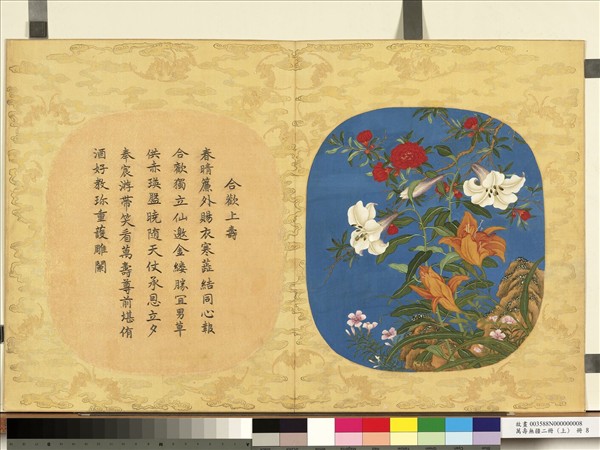 合歡上壽
春晴簾外賜衣寒蕋結同心報
合歡獨立仙邀金縷勝宜男草
供赤瑛盤曉隨天仗承恩立夕
奉宸游帶笑看萬壽尊前堪侑
酒好教珍重護雕闌
故畫 003588N000000008
萬壽無疆二冊（上） 冊 8